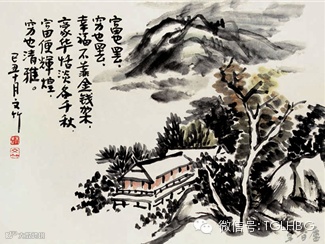 富也罢，
穷也罢，
幸福不并金钱架，
豪华恬淡各千秋，
富也辉煌，
穷也清雅。
己丑十月文竹
微信号: TCLHBG